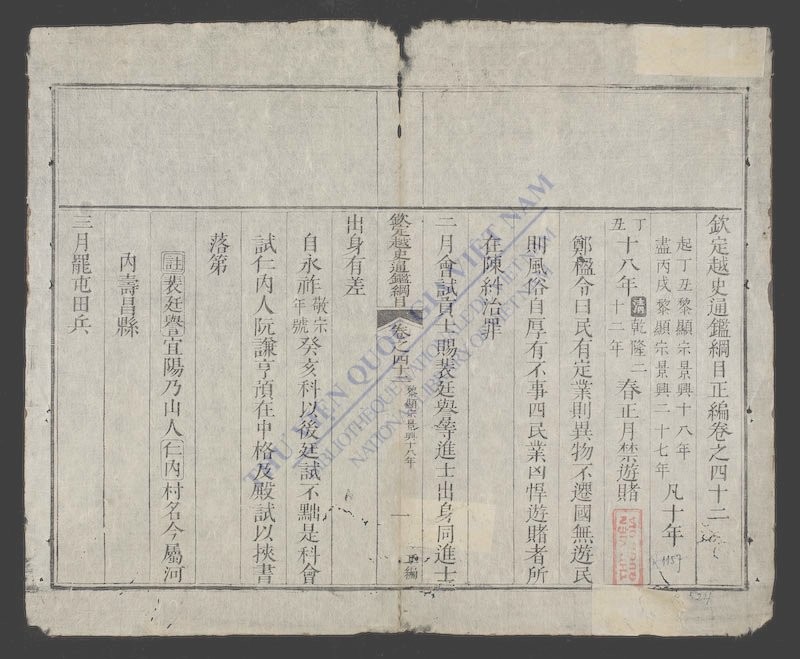 欽定越史通鑑綱目正編卷之四十二
起丁丑黎顯宗景興十八年
盡丙戌黎顯宗景興二十七年
凡十年
丁丑
十八年
清乾隆二十二年
春正月禁遊賭
鄭楹令曰民有定業則異物不遷國無遊民
則風俗自厚有不事四民業凶悍遊賭者所
在陳糾治罪
二月會試貢士賜裴廷譽等進士出身同進士
欽定越史通鑑綱目
卷之四十二
黎顯宗景興十八年
一
正編
出身有差
自永祚
敬宗年號
癸亥科以後廷試不黜是科會
試仁內人阮謙亨預在中格及殿試以挾書
落第
註裴廷譽宜陽乃山人仁內村名今屬河
內壽昌縣
三月罷屯田兵
THƯ VIỆN QUỐC GIA VIỆT NAM
BIBLIOTHÈQUE NATIONALE DU VIETNAM
NATIONAL LIBRARY OF VIETNAM